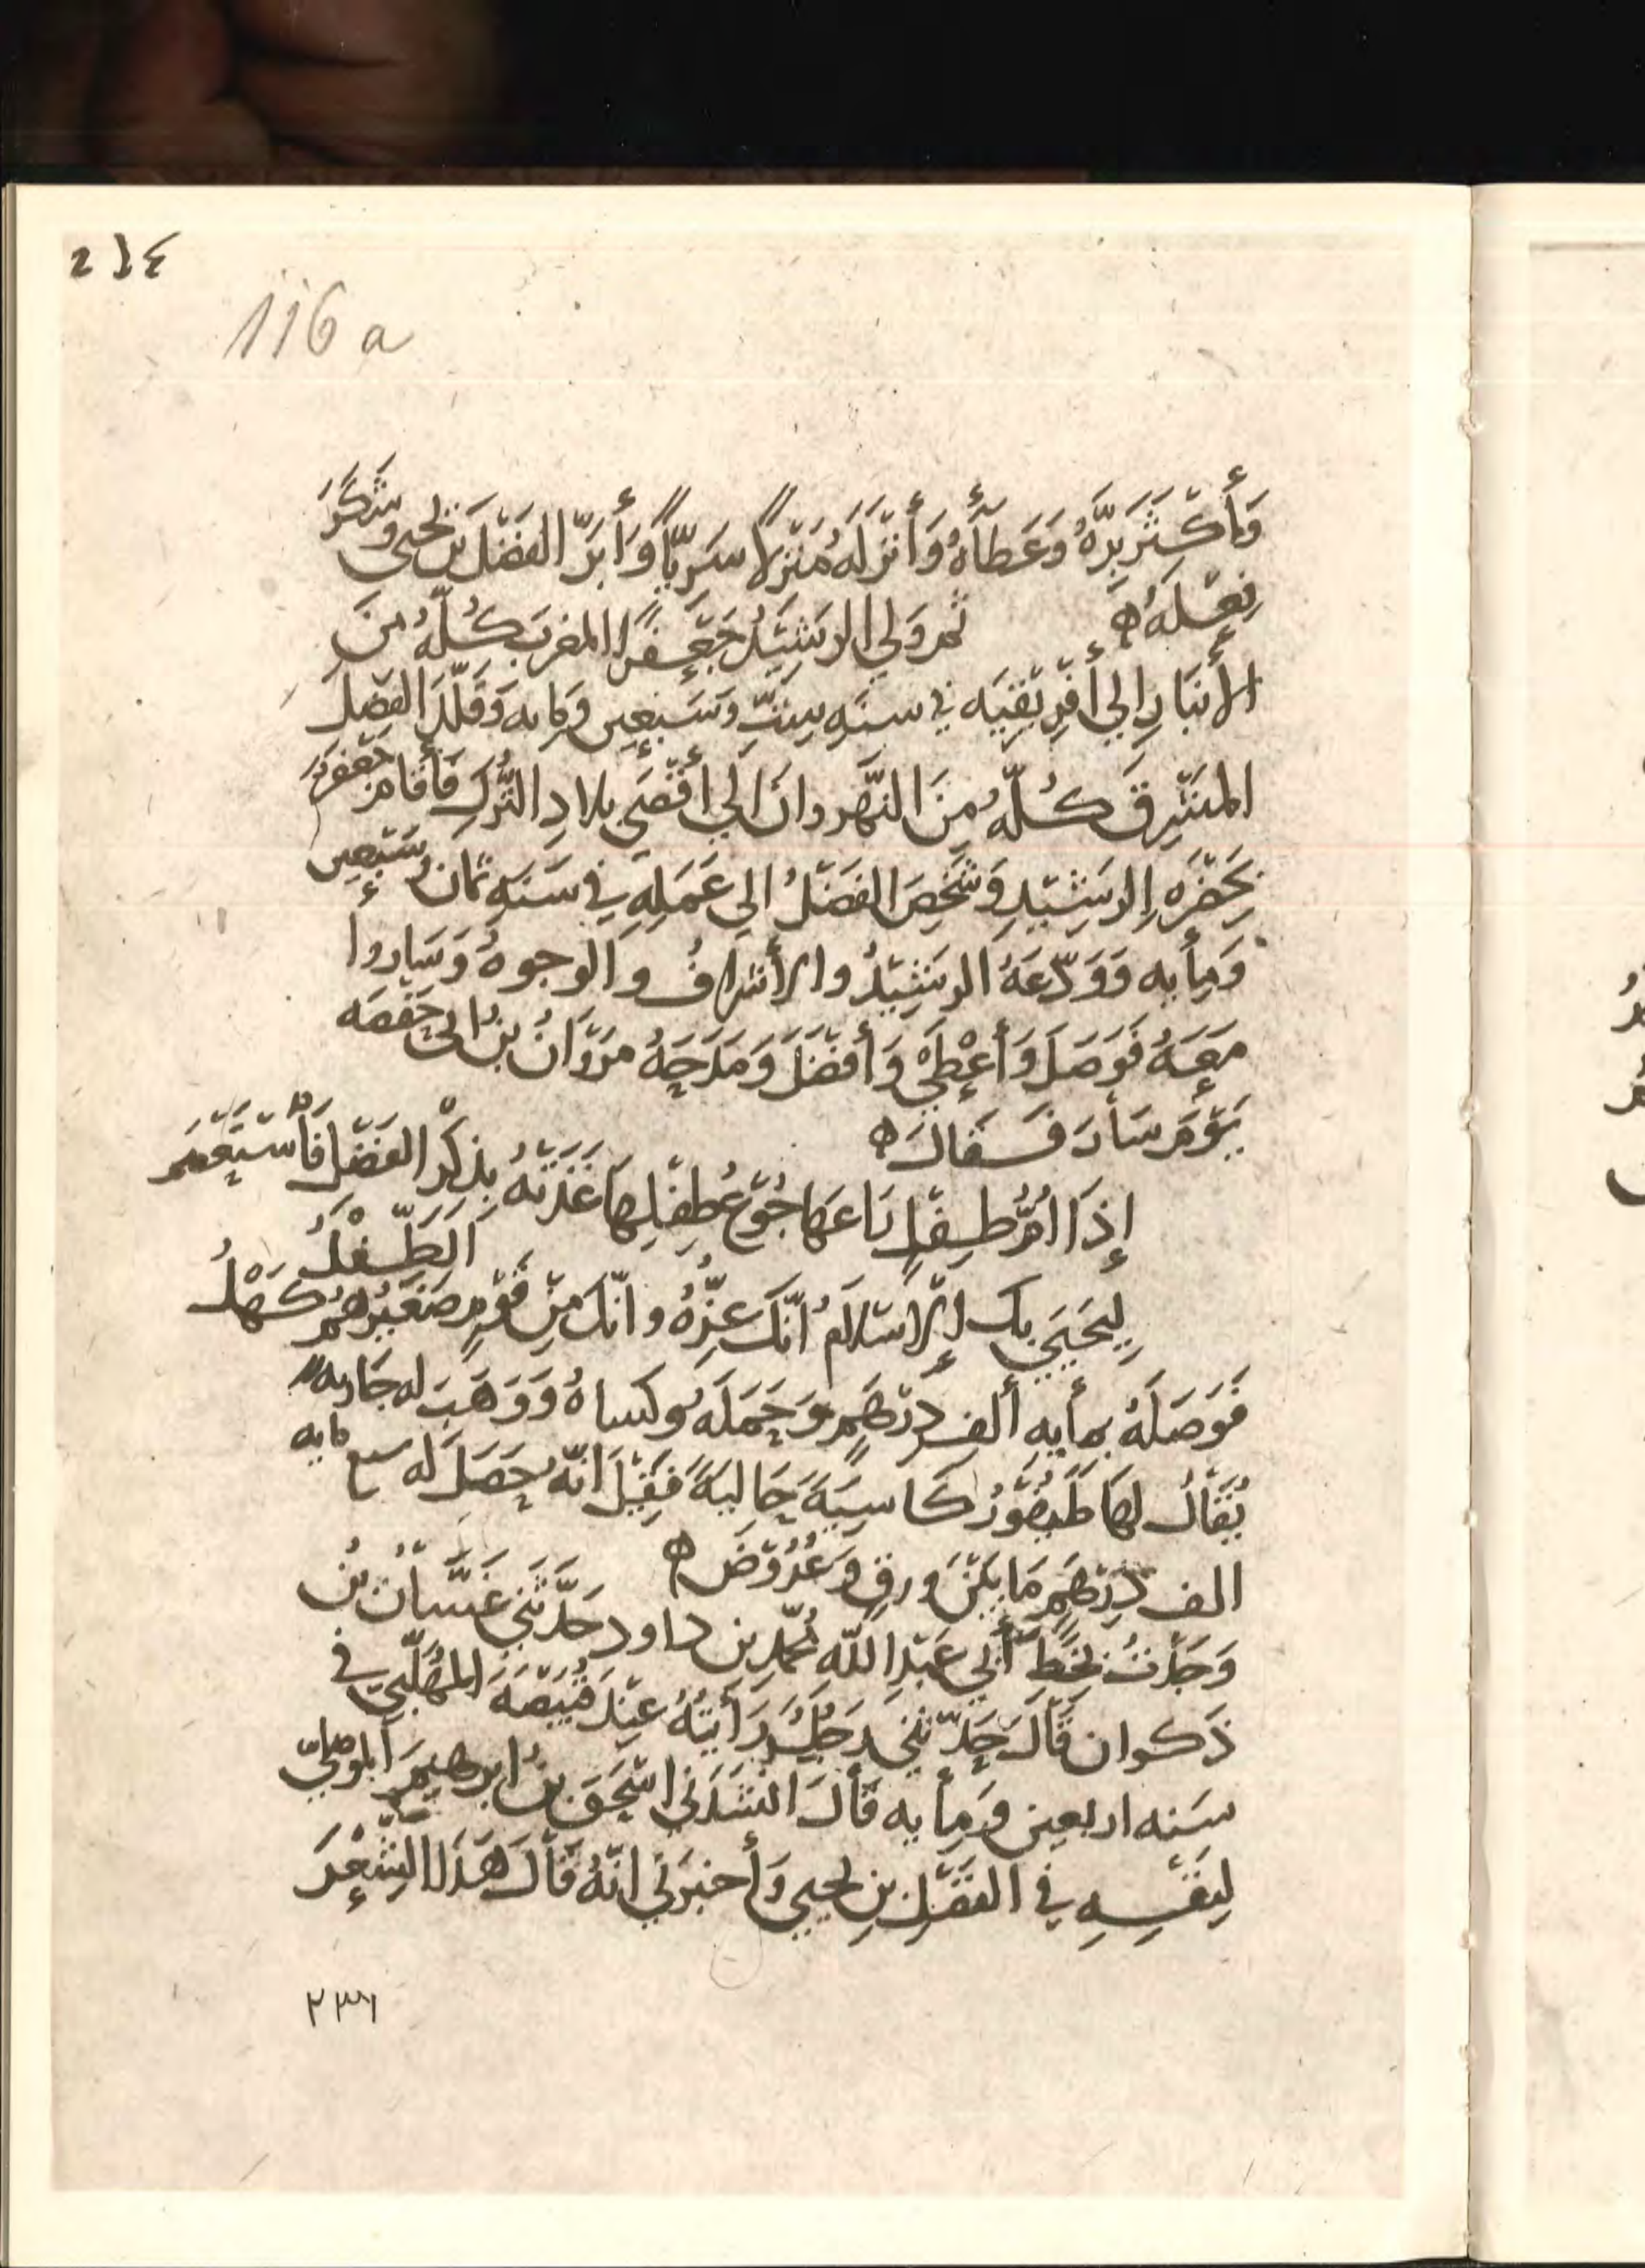 ٢١٤
116 a
وَأَكْثَرَ بِرَّهُ وَعَطَأَهُ وَأَنْزَلَهُ مَنْزِلًا سَرِيًّا وَأَبَرَّ الفَضْلَ بْنَ يحيى وشَكَرَ
فِعْلَهُ ه ثم وَلي الرَشِيْدُ جَعْفَرًا المغربَ كُلَّهُ مِنَ
الأَنْبَارِ إلي أَفْرِيْقِيَه في سنَهِ سِتٍّ وسَبْعِين ومايه وَقَلَّدَ الفَضْلَ
المَشْرِقَ كُلَّهُ مِنَ النَّهْروان إلي أَقْصَي بلادِ التُّرْكِ فَأَقَامَ جَعْفَرٌ
بحَضْرَهِ الرَشِيْدِ وَشَخَصَ الفَضْلُ الي عَمَلِهِ في سَنَهِ ثمان وسَبْعِين
وَمِأيه وَوَدَّعَهُ الرَشِيْدُ والأَشْرافُ والوجوهُ وَسَاروا
مَعَهُ فَوَصَلَ وَأَعْطَيْ وَأَفْضَلَ وَمَدَحَهُ مَرْوَانُ بنُ ابي حَفْصَه
يَوْمَ سَأرَ فَقَالَ ه
إِذَا أُمُّ طِفْلٍ رَاعَهَا جُوْعُ طِفْلِهَا غَذَتْهُ بِذِكْرِ الفَضْلِ فَأسْتَعْصَمَ
الطِّفْلُ
لِيَحْيَي بِكَ الإسْلَامُ أنّكَ عِزُّهُ وانّكَ مِنْ قَوْمٍ صَغِيْرُهُمُ كَهْلُ
فَوَصَلَهُ بمأيهِ ألفِ دِرْهَمٍ وَحَمَلَهُ وكسَاهُ وَوَهَبَ له جَاريه
يُقَالُ لهَا طَيْفُوْرُ كَاسِيَةً حَالِيَةً فَقِيْلَ انّهُ حَصَلَ له سبع مايه
الف دِرْهَمٍ مَا بَيْنَ وَرِقٍ وَعُرُوْضٍ ه
وَجَدْتُ بخَطِّ أبي عَبْدِ اللّه محمّدِ بن داود حَدَّثَني غَسَّانُ بْنُ
ذَكوان قَالَ حَدَّثَني رَجُلٌ رَأَيْتُهُ عِنْدَ قَبِيْصَةَ المُهَلَّبيّ في
سَنه اربعين ومِأيه قَأل انْشَدَني اسْحَقُ بنُ ابرهيم الموصليّ
لِنفْسِهِ في الفَضْلِ بنِ يحيى وَأَخبرَني انّهُ قَأل هَذا الشِعْرَ
٢٣١